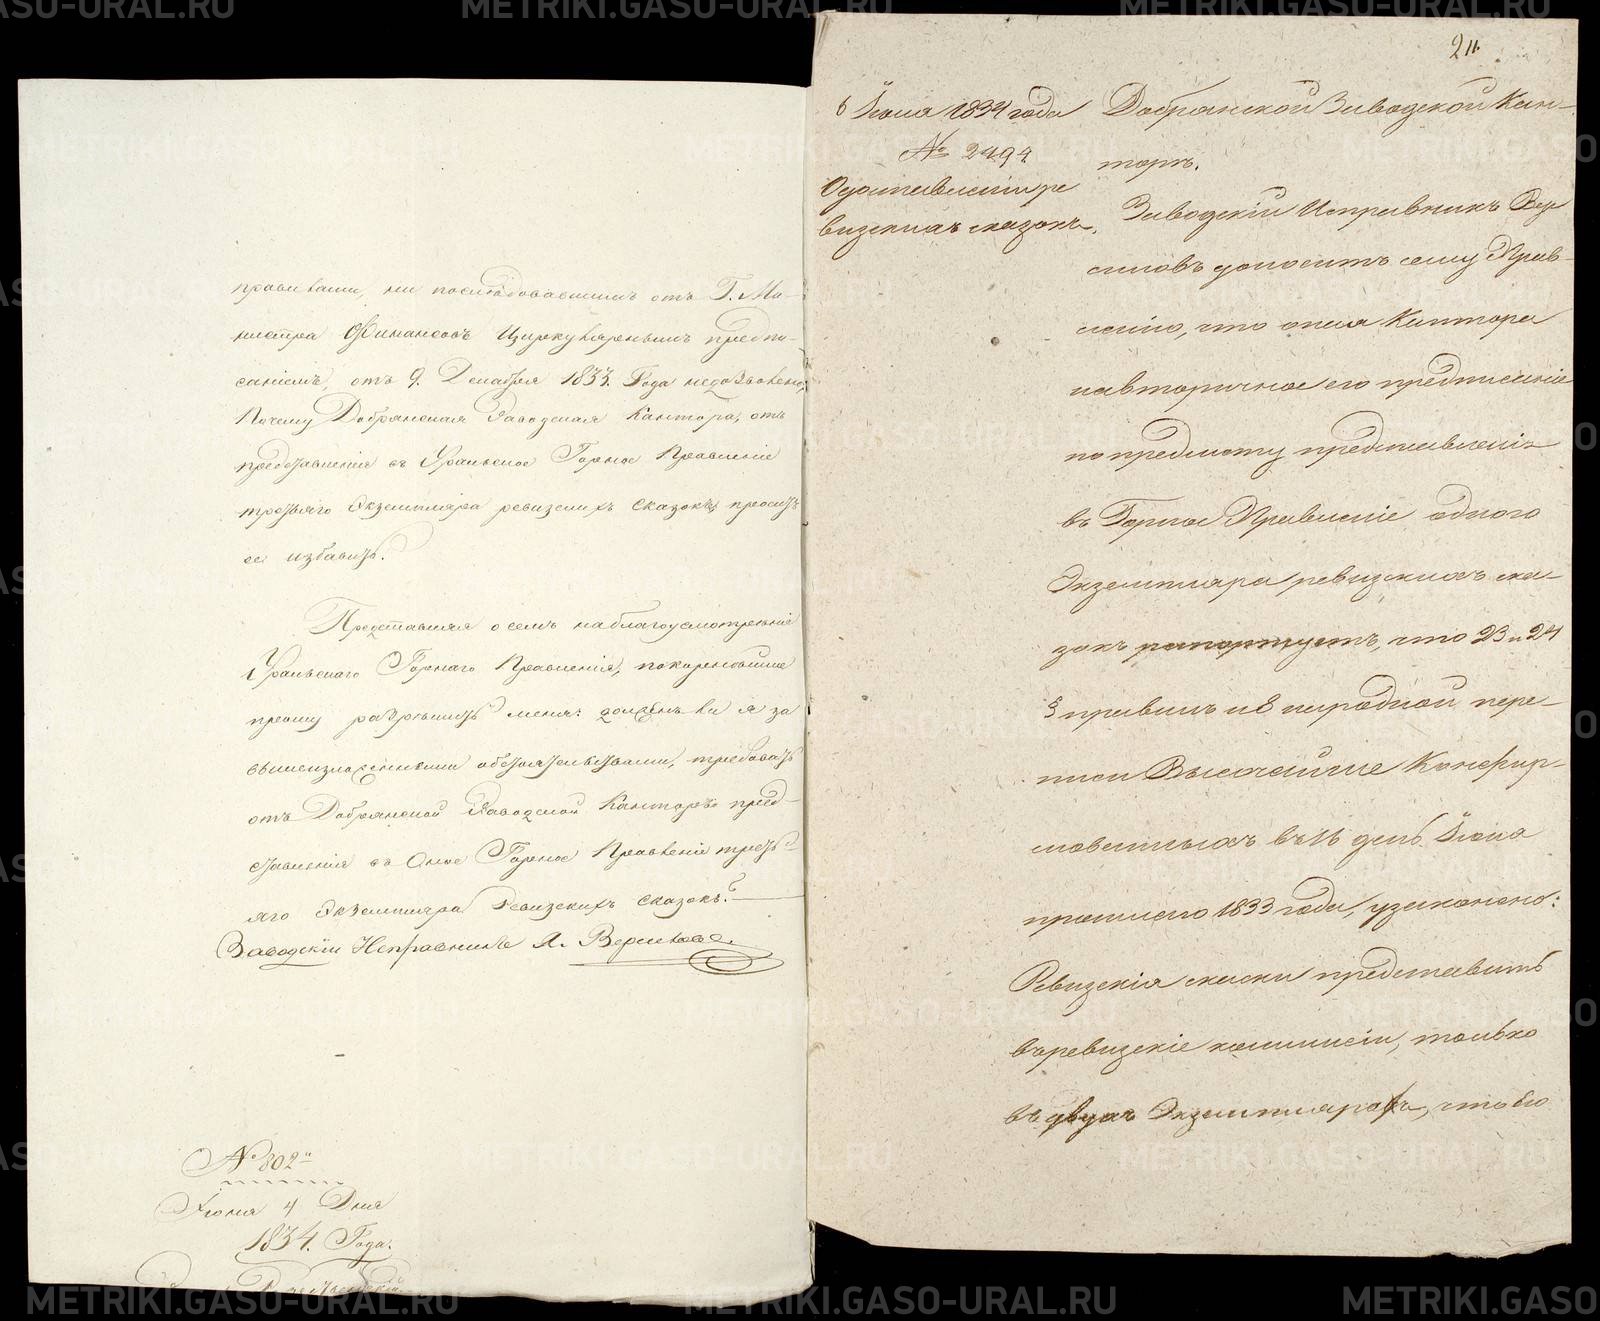 правилами, ни последовавшимъ отъ Г. Ми-
нистра Финансовъ Циркулярнымъ предпи-
саніемъ, отъ 9. Декабря 1833. Года недозволено,
Почему Добрянская Заводская Кантора, отъ
представленія въ Уральское Горное Правленіе
третьяго Экземпляра ревизскихъ сказокъ, проситъ
ее избавить.
Представляя о семъ на благоусмотреніе
Уральскаго Горнаго Правленія, покорнейше
прошу разрешить меня: долженъ ли я за
вышеизложенными обстоятельствами, требовать
отъ Добрянской Заводской Канторы пред-
ставленія въ Оное Горное Правленіе треть-
яго Экземпляра Ревизскихъ сказокъ?
Заводскій Исправникъ А. Версиловъ.
№ 802
Іюня 4 Дня
1834. Года.
2
6 Іюля 1834 года
№ 2494
О доставленіи ре
визскихъ сказокъ.
Добрянской Заводской Кан-
торъ.
Заводскій Исправникъ Вер
силовъ доноситъ сему Прав-
ленію, что оная Кантора
на вторичное его предписаніе
по предмету представленія
въ Горное Правленіе одного
Экземпляра ревизскихъ ска-
зокъ рапортуетъ, что 23 и 24
§ правилъ и 8 народной пере-
писи Высочайше Конфир-
мованныхъ въ 16 день Іюня
прошлаго 1833 года, узаконено:
Ревизскія сказки представить
въ ревизскіе коммисіи, только
въ двухъ Экземплярахъ, чтобы
METRIKI.GASO-URAL.RU